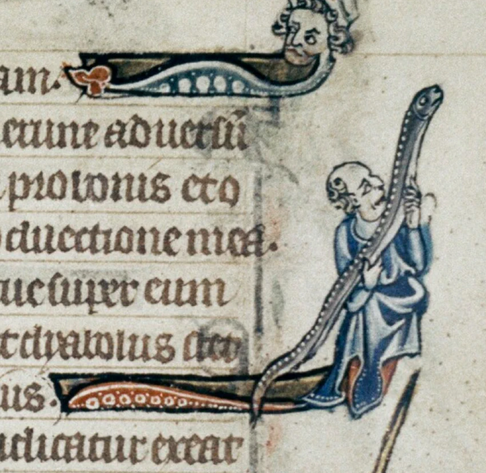 am.
erunt aduersū
pro bonis et o
dilectione mea.
ue super eum
t dyabolus stet
us.
udicatur exeat